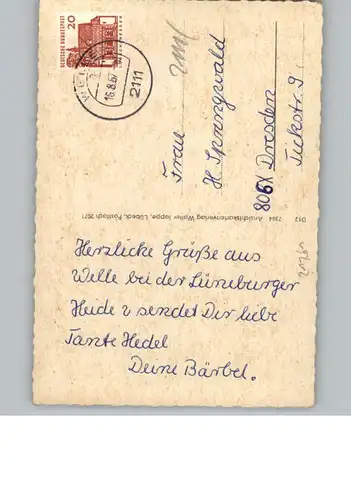 Herzliche Grüße aus
Welle bei der Lüneburger
Heide sendet Dir liebe
Tante Hedel
Deine Bärbel.
Frau
H. Sprungwald
806X Dresden
Tiekstr. 9
D12 7384 Ansichtskartenverlag Walter Jappe, Lübeck, Postfach 2571
20
DEUTSCHE BUNDESPOST
16.8.67
2111